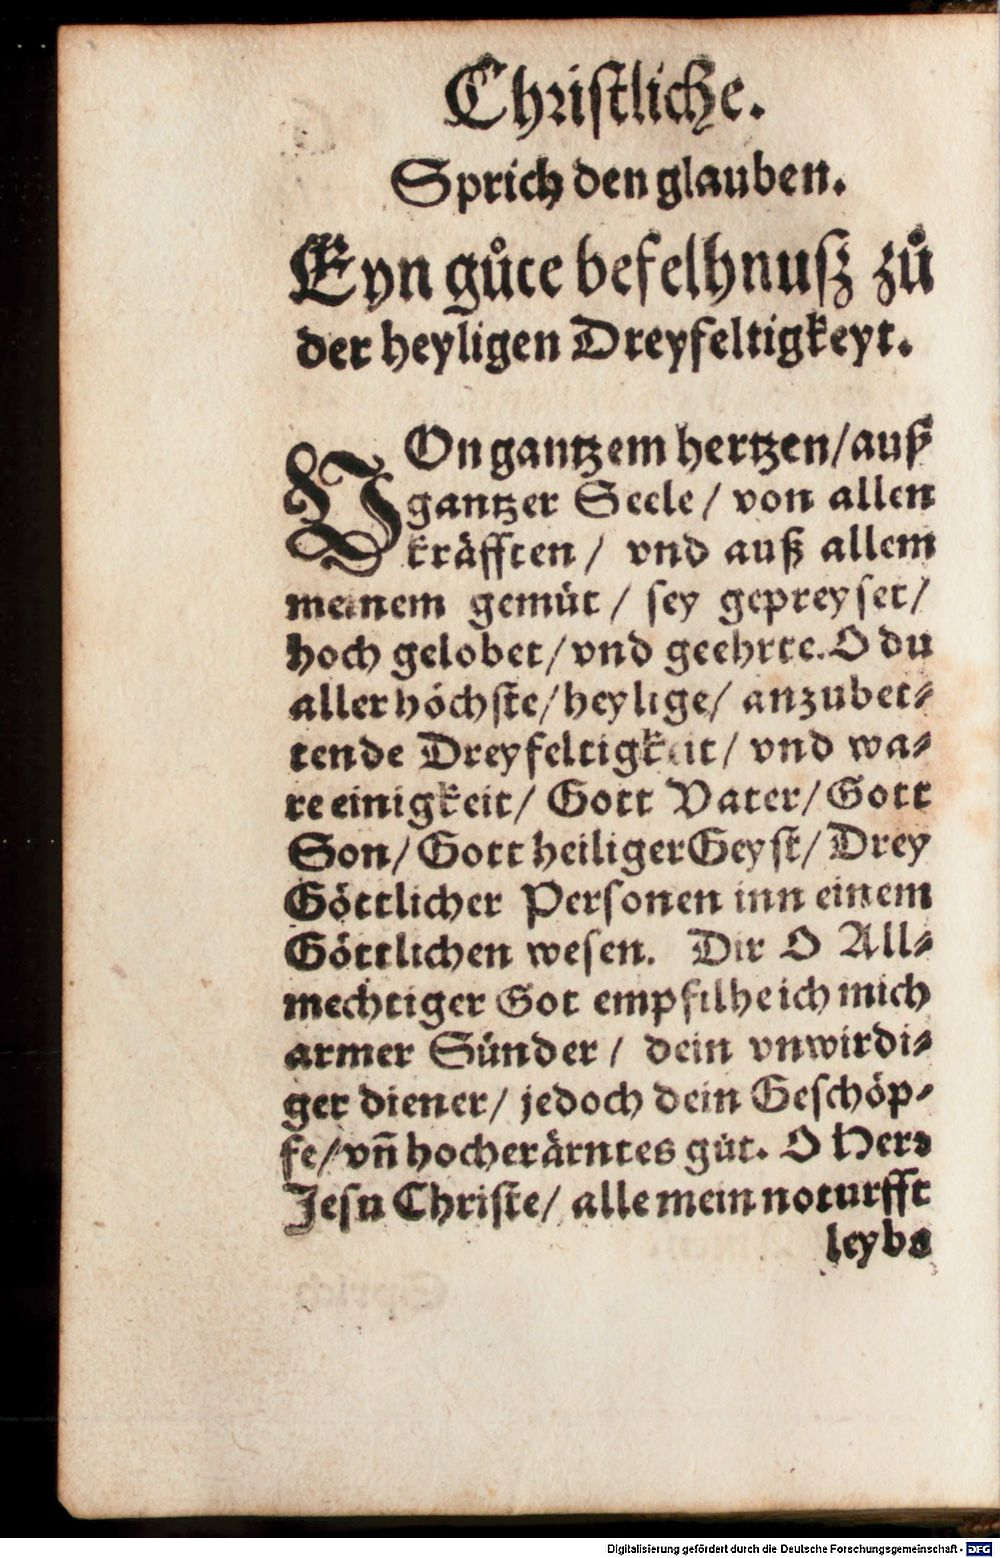 Christliche.
Sprich den glauben.
Eyn gůte befelhnuſz zů
der heyligen Dreyfeltigkeyt.
VOn gantzem hertzen/auß
gantzer Seele/ von allen
kräfften/ vnd auß allem
meinem gemüt/ ſey gepreyſet/
hoch gelobet/vnd geehrte. O du
aller höchſte/heylige/ anzubet⸗
tende Dreyfeltigkeit/ vnd wa⸗
re einigkeit/ Gott Vater/Gott
Son/Gott heiliger Geyſt/ Drey
Göttlicher Perſonen inn einem
Göttlichen weſen. Dir O All⸗
mechtiger Got empfilhe ich mich
armer Sünder/ dein vnwirdi⸗
ger diener/ jedoch dein Geſchöp⸗
fe/vñ hocherärntes gůt. O Herꝛ
Jeſu Chriſte/ alle mein noturfft
leybs
Digitalisierung gefördert durch die Deutsche Forschungsgemeinschaft - DFG